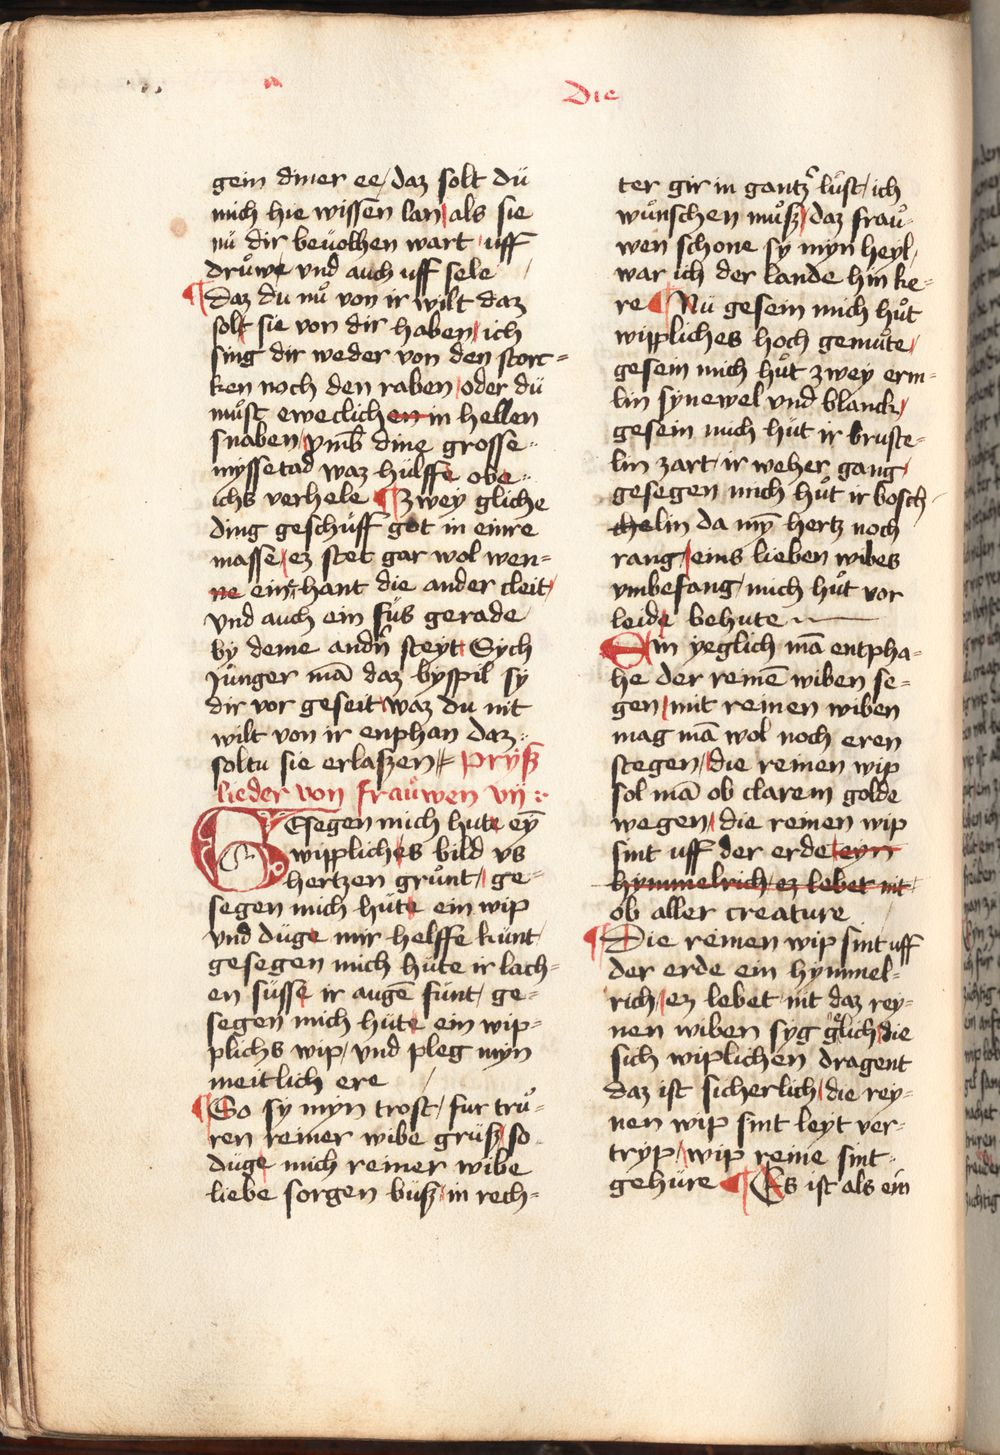 Die
gein diner ee / daz solt dü
mich hie wissen lan / als sie
nü dir beuolhen wart / uff
drůwe vnd auch uff sele /
¶ Daz du nů von ir wilt daz
solt sie von dir haben / ich
sing dir weder von den storc=
ken noch den raben / oder dü
můst eweclichen in hellen
snaben / vmb dine grosse=
myssetad waz hülffe obe=
ichs verhele ¶ Zwey gliche
ding geschüff got in einre
masse / ez stet gar wol wen=
ne ein hant die ander cleit /
vnd auch ein füs gerade
by deme andn̄ steyt / Sych
Jůnger mā daz byspil sy
dir vor geseit / waz du nit
wilt von ir enphan daz=
soltu sie erlaszen // Prÿsz
lieder von fraůwen vij :
GEsegen mich hute eȳ
wippliches bild vs
hertzen grůnt / ge=
segen mich hüte ein wip
vnd düge mir helffe künt /
gesegen mich hüte ir lach=
en süsse ir augē fünt / ge=
segen mich hüte ein wip=
plichs wip / vnd pleg myn
meitlich ere /
¶ So sy myn trost / fur trů=
ren reiner wibe grüsz / so
düge mich reiner wibe
liebe sorgen büsz / in rech=
ter gir in gantz̄ lůst / ich
wůnschen můsz / daz fraů=
wen schone sy myn heyl /
war ich der lande hin ke=
re ¶ Nü gesein mich hůt
wippliches hoch gemůte /
gesein mich hůt zwey erm=
lin synewel vnd blanck /
gesein mich hüt ir bruste=
lin zart / ir weher gang /
gesegen mich hůt ir bosch
chelin da mȳ hertz noch
rang / eins lieben wibes
vmbefang / mich hůt vor
leide behute
Ein yeglich mā entpha=
he der reinē wiben se=
gen / mit reinen wiben
mag mā wol noch eren
stegen / die reinen wip
sol mā ob clarem golde
wegen / die reinen wip
sint uff der erde / eyn
hymmelrich / ez lebet nit /
ob aller creature
¶ Die reinen wip sint uff
der erde ein hymmel=
rich / ez lebet nit daz rey=
nen wiben syg glich / die
sich wiplichen dragent
daz ist sicherlich / die rey=
nen wip sint leyt ver=
tryp / wip reine sint=
gehüre ¶ Es ist als ein